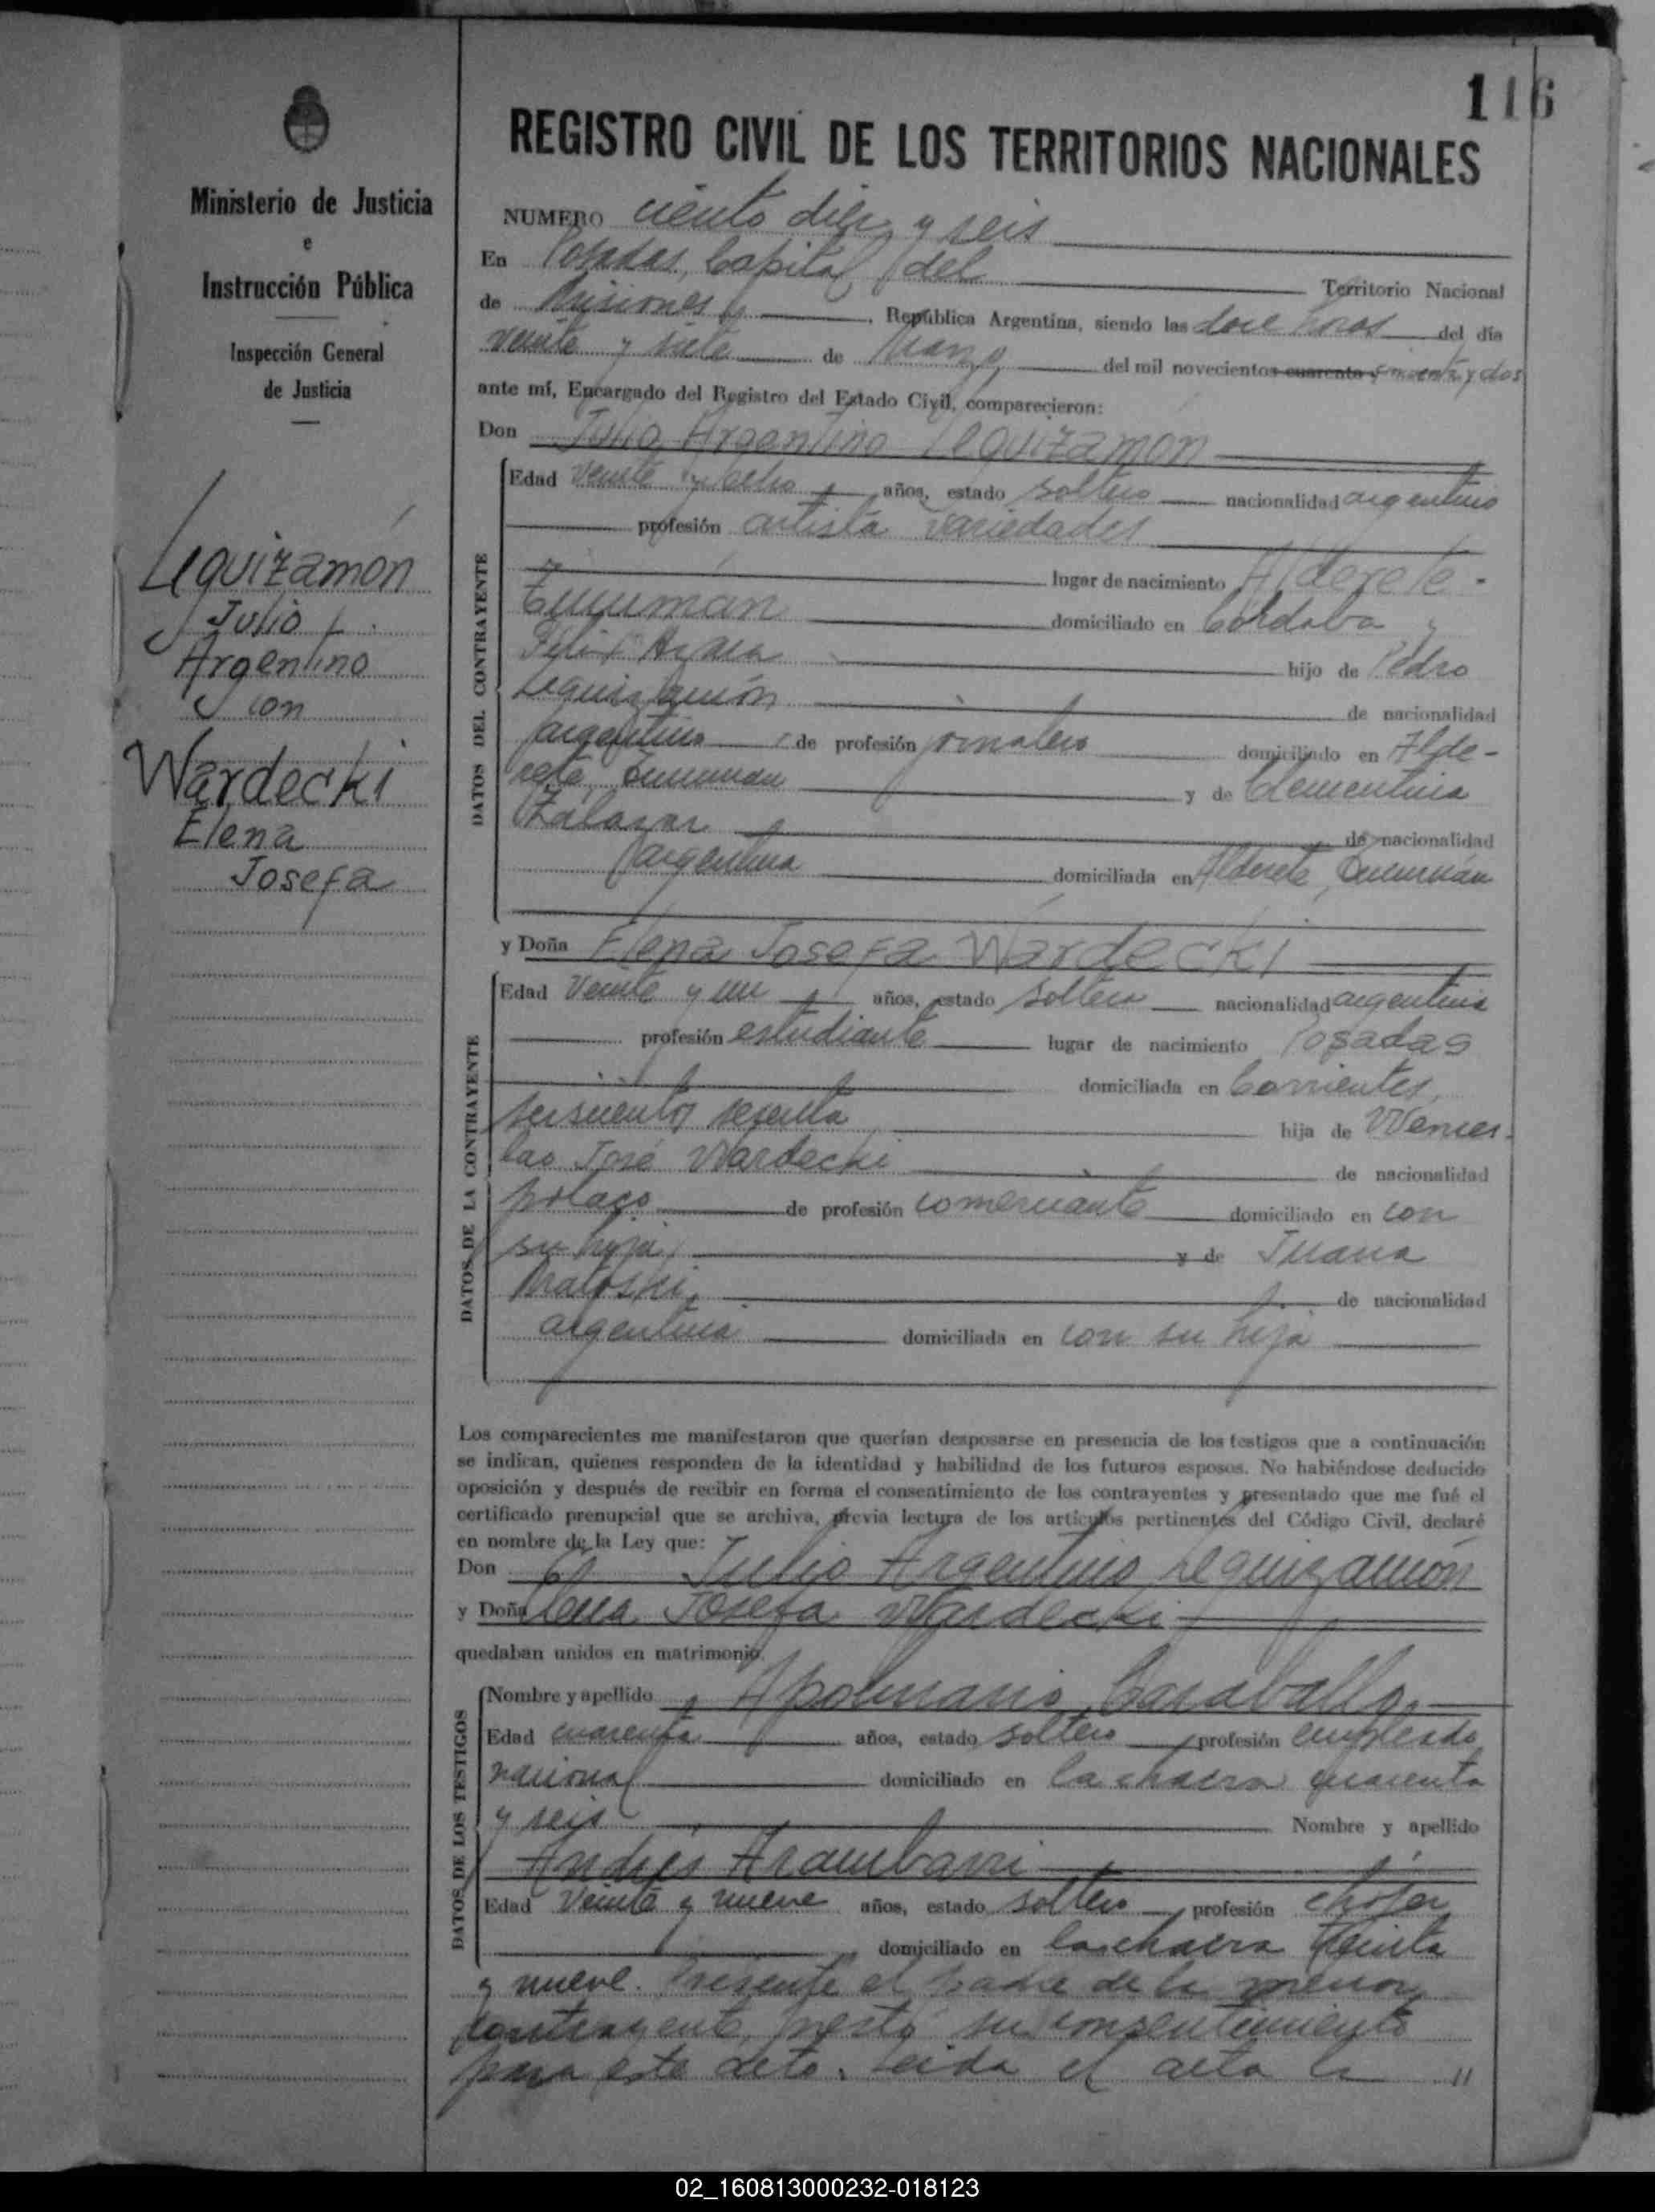 116
REGISTRO CIVIL DE LOS TERRITORIOS NACIONALES
Ministerio de Justicia
e
Instrucción Pública
Inspección General
de Justicia
Leguizamón
Julio
Argentino
con
Wardecki
Elena
Josefa
NUMERO ciento diez y seis
En Posadas, Capital del Territorio Nacional
de Misiones, República Argentina, siendo las doce horas del día
veinte y siete de Marzo del mil novecientos cuarenta cincuenta y dos
ante mí, Encargado del Registro del Estado Civil, comparecieron:
Don Julio Argentino Leguizamón
DATOS DEL CONTRAYENTE
Edad veinte y ocho años, estado soltero nacionalidad argentino
profesión artista variedades
lugar de nacimiento Alderete -
Tucumán domiciliado en Córdoba y
Félix hijo de Pedro
Leguizamón de nacionalidad
argentino de profesión jornalero domiciliado en Alde-
rete, Tucumán y de Clementina
Zalazar de nacionalidad
argentina domiciliada en Alderete, Tucumán
y Doña Elena Josefa Wardecki
DATOS DE LA CONTRAYENTE
Edad veinte y un años, estado soltera nacionalidad argentina
profesión estudiante lugar de nacimiento Posadas
domiciliada en Corrientes,
seiscientos sesenta hija de Wences-
lao José Wardecki de nacionalidad
polaco de profesión comerciante domiciliado en con
su hija, y de Juana
de nacionalidad
argentina domiciliada en con su hija
Los comparecientes me manifestaron que querían desposarse en presencia de los testigos que a continuación
se indican, quienes responden de la identidad y habilidad de los futuros esposos. No habiéndose deducido
oposición y después de recibir en forma el consentimiento de los contrayentes y presentado que me fué el
certificado prenupcial que se archiva, previa lectura de los artículos pertinentes del Código Civil, declaré
en nombre de la Ley que:
Don Julio Argentino Leguizamón
y Doña Elena Josefa Wardecki
quedaban unidos en matrimonio.
DATOS DE LOS TESTIGOS
Nombre y apellido Apolinario Caraballo
Edad cuarenta años, estado soltero profesión empleado
nacional domiciliado en la chacra cuarenta
y seis Nombre y apellido
Andrés Arambarri
Edad veinte y nueve años, estado soltero profesión chofer
domiciliado en la chacra treinta
y nueve. Presente el padre de la menor
contrayente, prestó su consentimiento
para este acto. Leida el acta la "
02_160813000232-018123